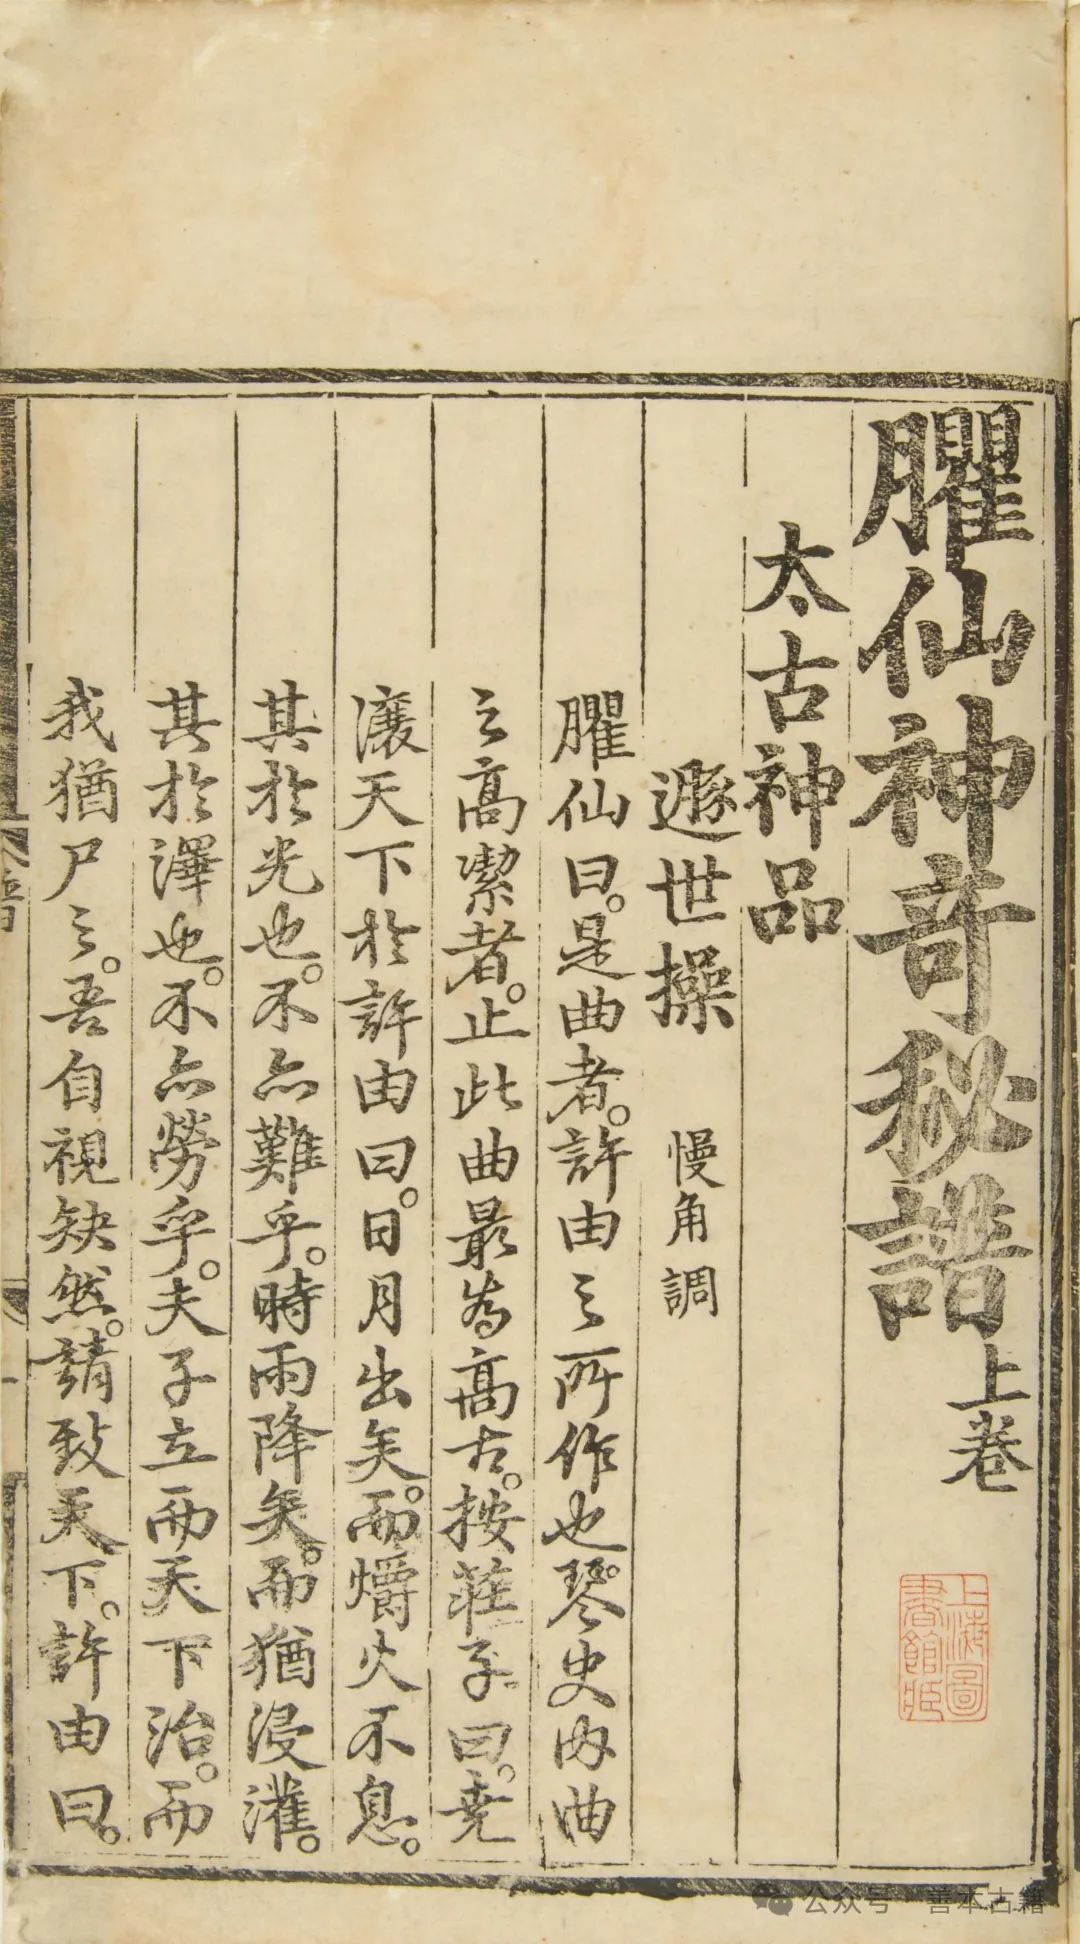 臞仙神奇秘譜上卷
太古神品
遯世操 慢角調
臞仙曰。是曲者。許由之所作也。琴史內曲
之高潔者。止此曲最為高古。按莊子曰。堯
讓天下於許由曰。日月出矣。而爝火不息。
其於光也。不亦難乎。時雨降矣。而猶浸灌。
其於澤也。不亦勞乎。夫子立而天下治。而
我猶尸之。吾自視缺然。請致天下。許由曰。
上海圖書館藏
公众号 善本古籍